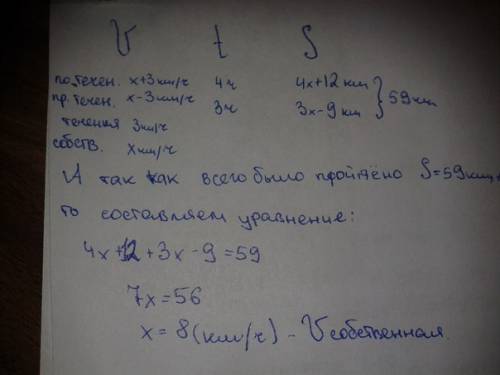 V t S
по течен. x+3км/ч 4ч 4x+12 км
пр. течен. x-3км/ч 3ч 3x-9 км } 59 км
течения 3км/ч
собств. x км/ч
А так как всего было пройдено S=59км,
то составляем уравнение:
4x+12+3x-9=59
7x=56
x=8(км/ч) - V собственная.